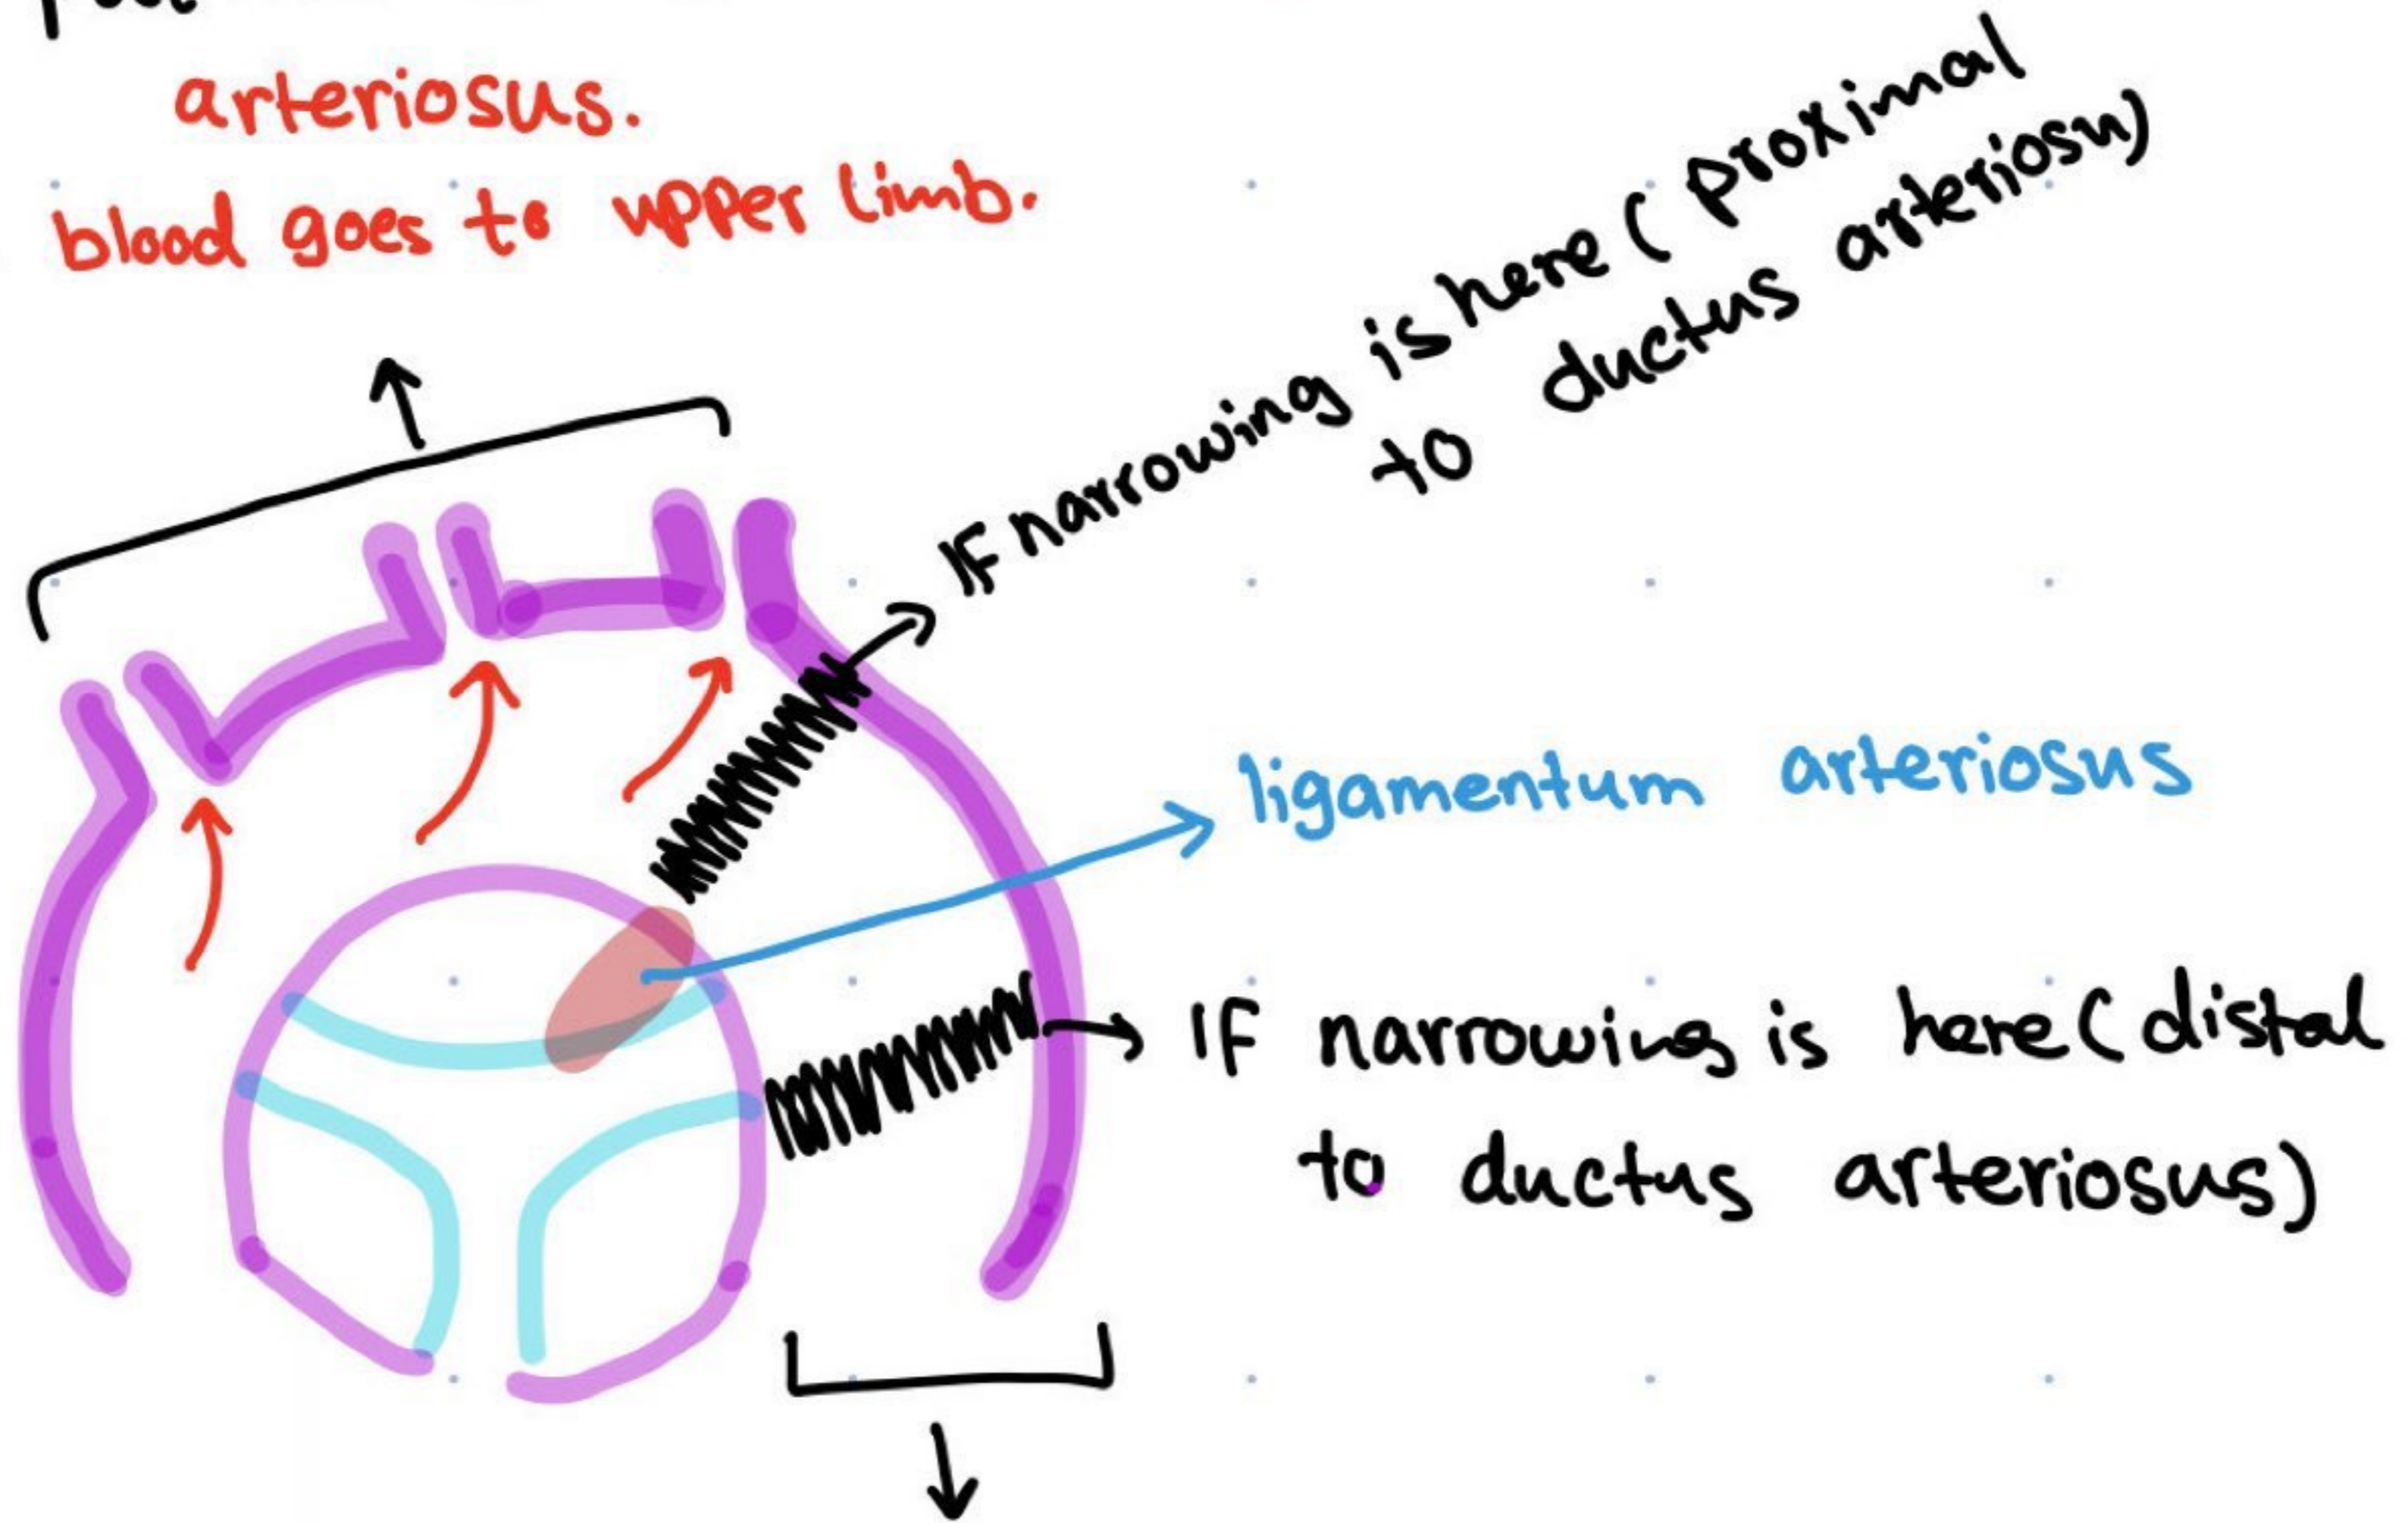 arteriosus.
blood goes to upper limb.
IF narrowing is here ( proximal
to ductus arteriosu)
ligamentum arteriosus
IF narrowing is here ( distal
to ductus arteriosus)